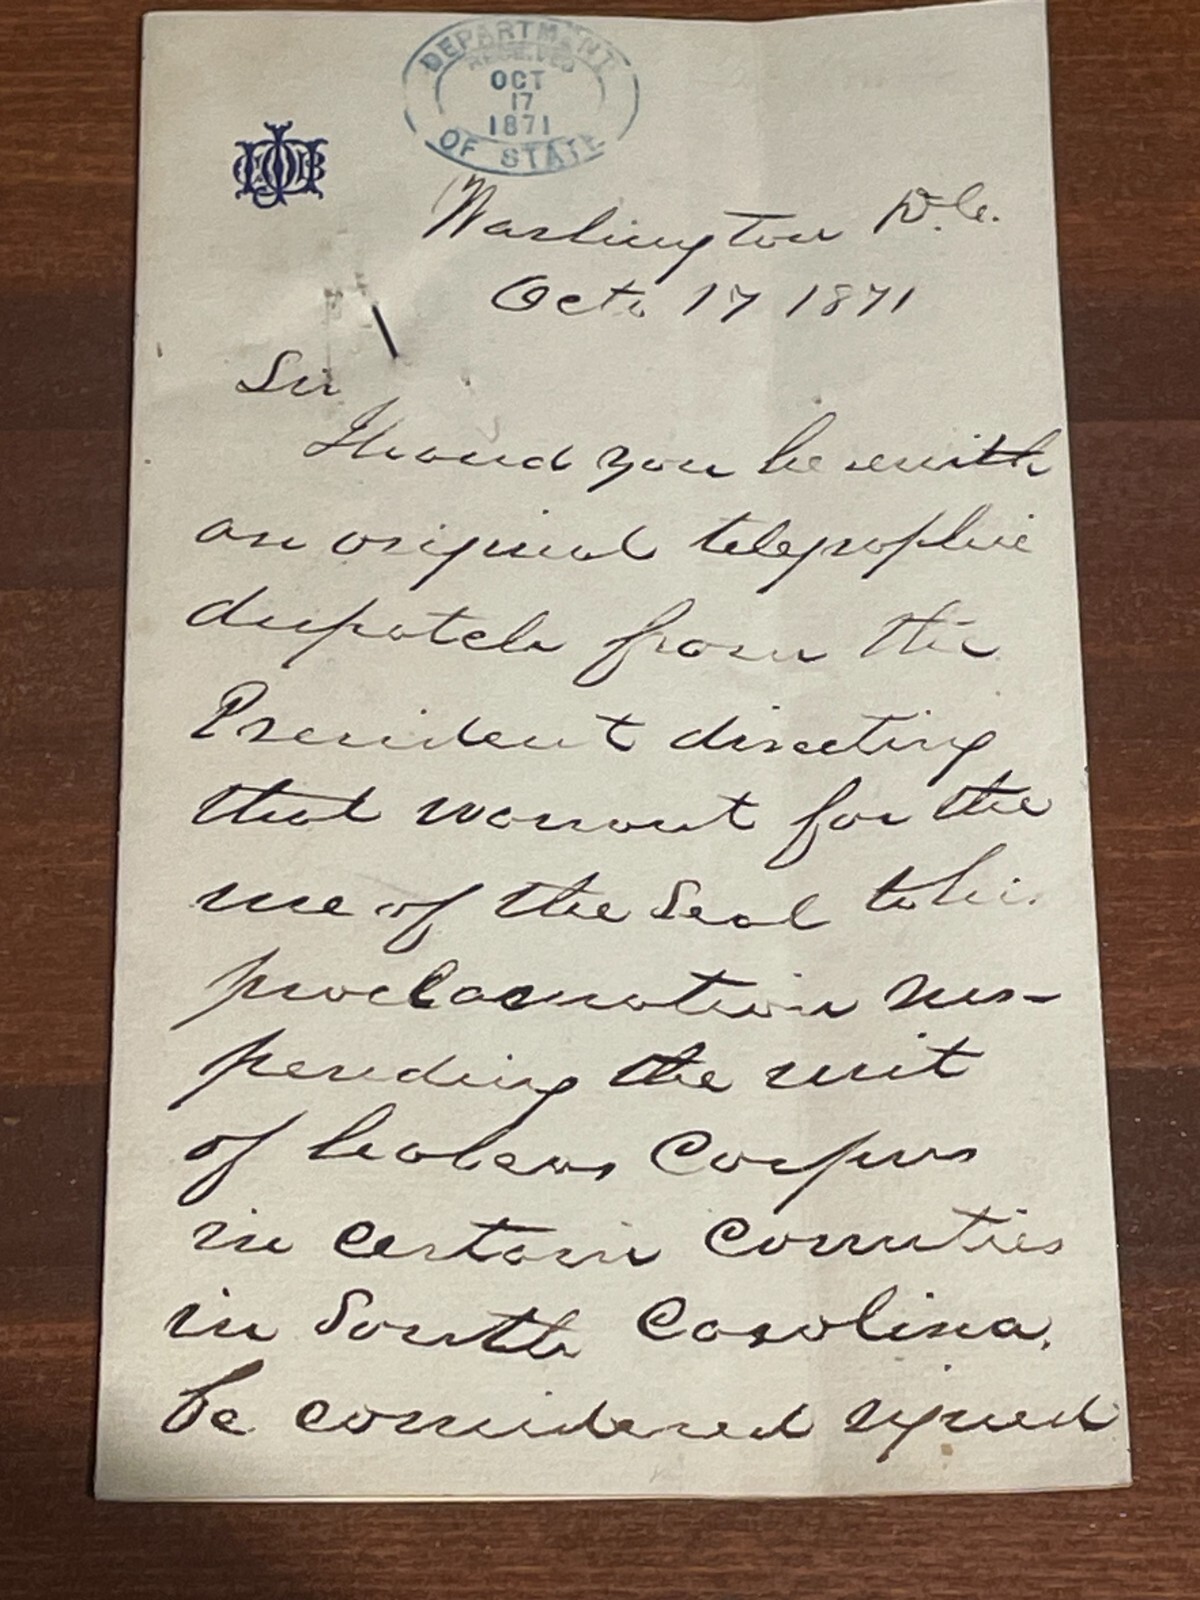 DEPARTMENT
RECEIVED
OCT
17
1871
OF STATE
Washington D.C.
Oct. 17 1871
Sir
I hand you herewith
an original telegraphic
dispatch from the
President directing
that warrant for the
use of the Seal to his
proclamation sus-
pending the writ
of habeas Corpus
in certain Counties
in South Carolina.
be considered signed